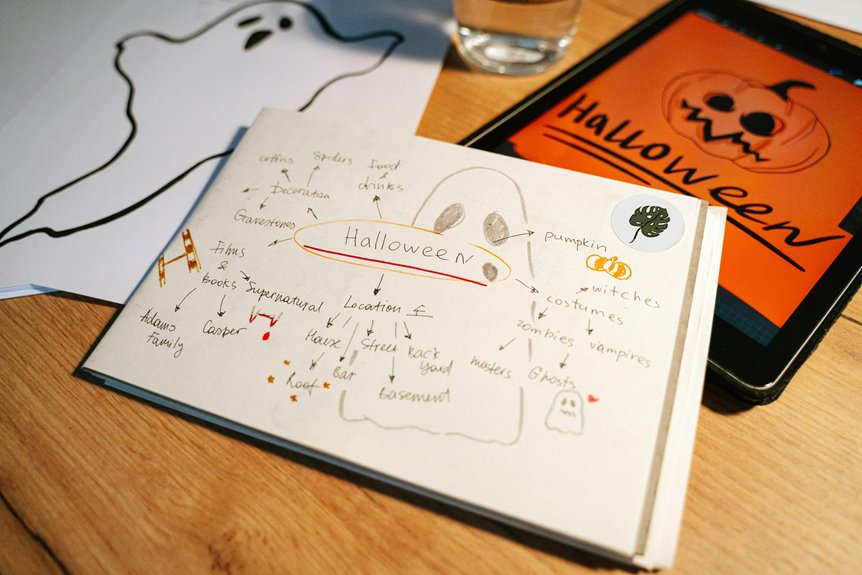 coffins
Spiders
Food
&
drinks
Decoration
Gravestones
Halloween
pumpkin
Films
&
Books
Supernatural
Adams
Family
Casper
Location
House
Street
Back
Yard
Roof
Bar
Basement
costumes
witches
zombies
vampires
Ghosts
Halloween